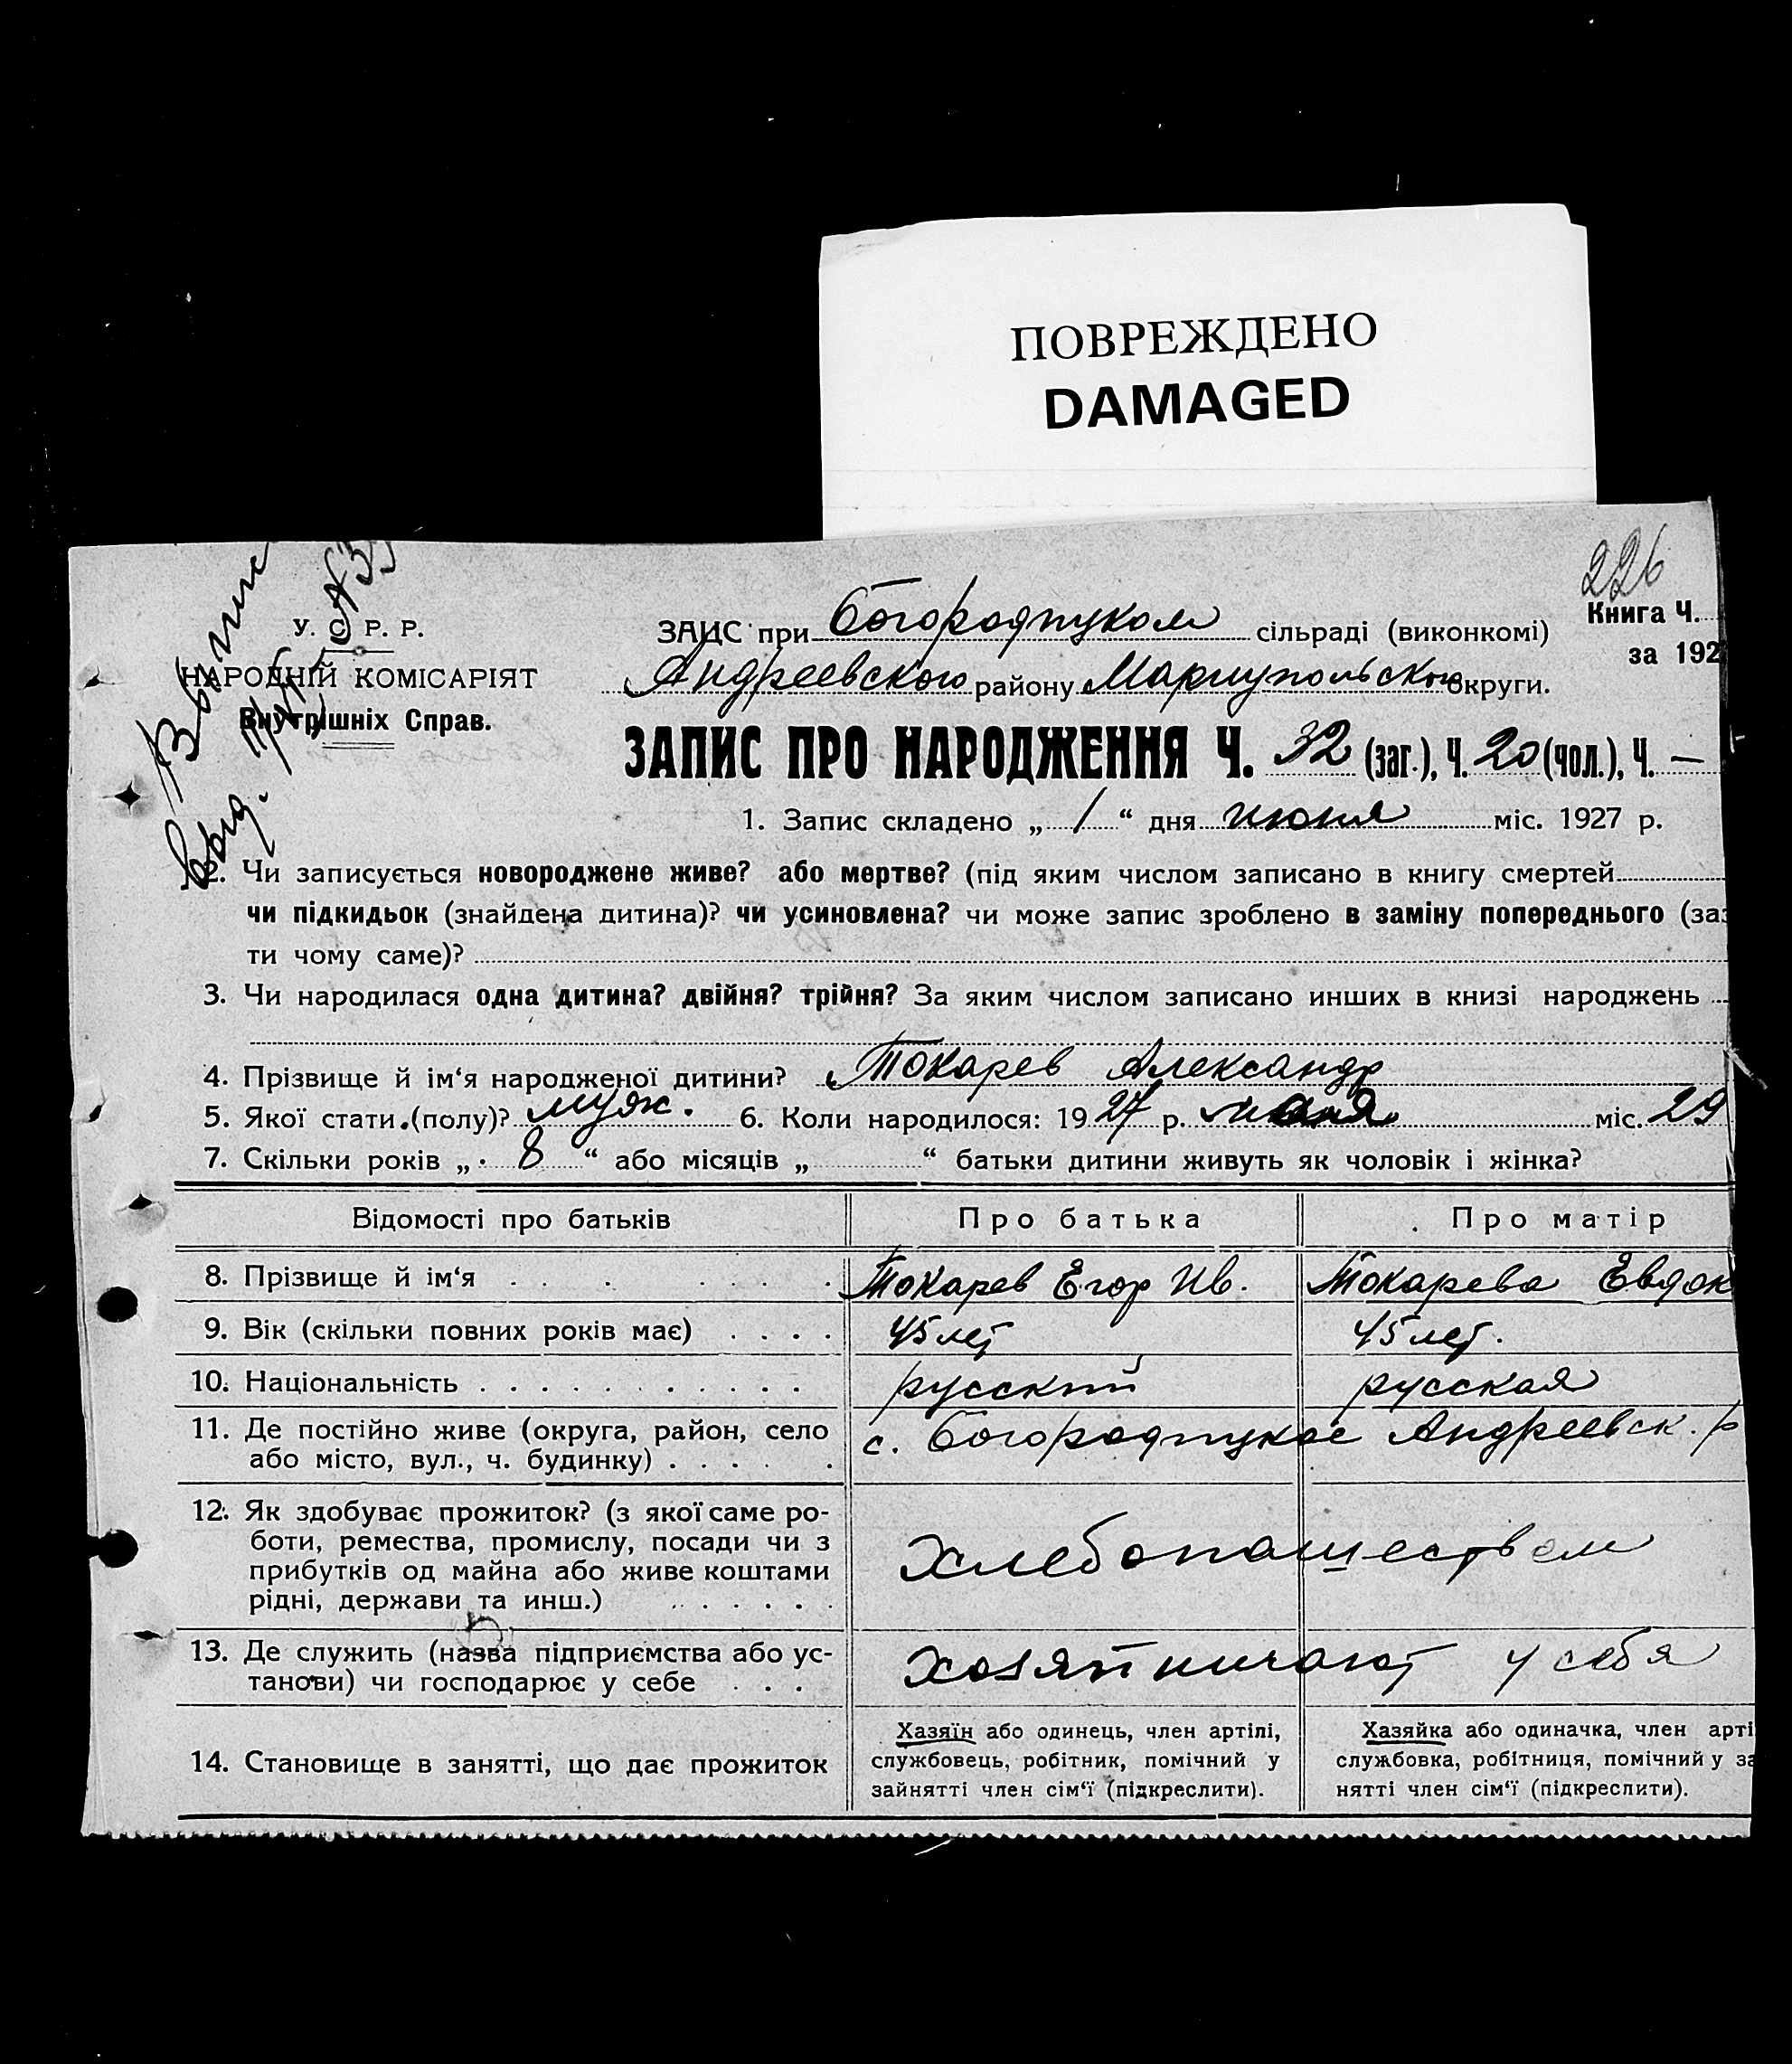 ПОВРЕЖДЕНО
DAMAGED
226
Книга Ч.
за 192
У. С. Р. Р.
НАРОДНІЙ КОМІСАРІЯТ
Внутрішніх Справ.
ЗАГС при Богородицком сільраді (виконкомі)
Андреевского району Мариупольского округи.
ЗАПИС ПРО НАРОДЖЕННЯ Ч. 32 (заг.), Ч. 20 (чол.), Ч. —
1. Запис складено „ 1 “ дня июня міс. 1927 р.
2. Чи записується новороджене живе? або мертве? (під яким числом записано в книгу смертей
чи підкидьок (знайдена дитина)? чи усиновлена? чи може запис зроблено в заміну попереднього (за
ти чому саме)?
3. Чи народилася одна дитина? двійня? трійня? За яким числом записано инших в книзі народжень
4. Прізвище й ім‘я народженої дитини? Токарев Александр
5. Якої стати (полу)? муж. 6. Коли народилося: 1927 р. мая міс. 29
7. Скільки років „ 8 “ або місяців „ “ батьки дитини живуть як чоловік і жінка?
Відомості про батьків Про батька Про матір
8. Прізвище й ім‘я . . . . . . . Токарев Егор Ив. Токарева Евдок
9. Вік (скільки повних років має) . . . . 45 лет 45 лет.
10. Національність . . . . . . . . . . . русский русская
11. Де постійно живе (округа, район, село
або місто, вул., ч. будинку) . . . . . с. Богородицкое Андреевск. р
12. Як здобуває прожиток? (з якої саме ро-
боти, ремества, промислу, посади чи з
прибутків од майна або живе коштами
рідні, держави та инш.) . . . . . . хлебопашеством
13. Де служить (назва підприємства або ус-
танови) чи господарює у себе . . . хозяйничают у себя
14. Становище в занятті, що дає прожиток
Хазяїн або одинець, член артілі,
службовець, робітник, помічний у
зайнятті член сім‘ї (підкреслити).
Хазяйка або одиначка, член арті
службовка, робітниця, помічний у за
нятті член сім‘ї (підкреслити).